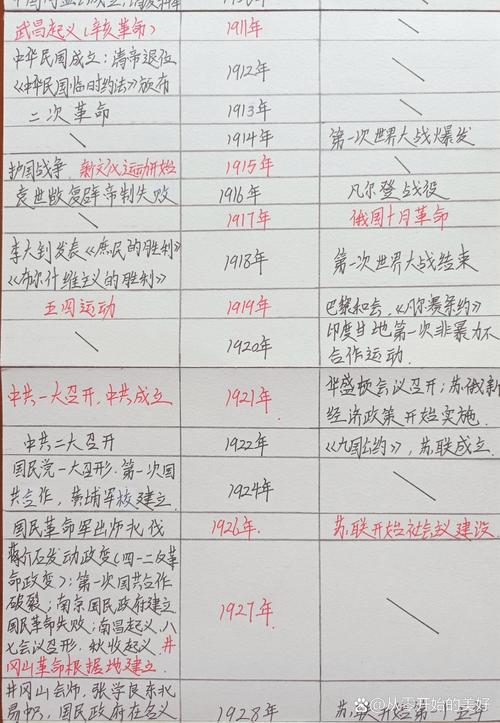 武昌起义(辛亥革命) 1911年
中华民国成立;清帝退位
《中华民国临时约法》颁布 1912年
二次革命 1913年
1914年 第一次世界大战爆发
护国战争,新文化运动开始 1915年
袁世凯复辟帝制失败 1916年 凡尔登战役
1917年 俄国十月革命
李大钊发表《庶民的胜利》
《布尔什维主义的胜利》 1918年 第一次世界大战结束
五四运动 1919年 巴黎和会,《凡尔赛条约》
1920年 印度甘地第一次非暴力不
合作运动.
中共一大召开,中共成立 1921年. 华盛顿会议召开;苏俄新
经济政策开始实施.
中共二大召开 1922年 《九国公约》,苏联成立.
国民党一大召开.第一次国
共合作,黄埔军校建立. 1924年
国民革命军出师北伐 1926年. 苏联开始社会主义建设.
蒋介石发动政变(四一二反革
命政变);第一次国共合作
破裂;南京国民政府建立
国民革命失败;南昌起义,八
七会议召开.秋收起义,井
冈山革命根据地建立. 1927年
井冈山会师,张学良东北
易帜,国民政府在名义 1928年
从零开始的美好